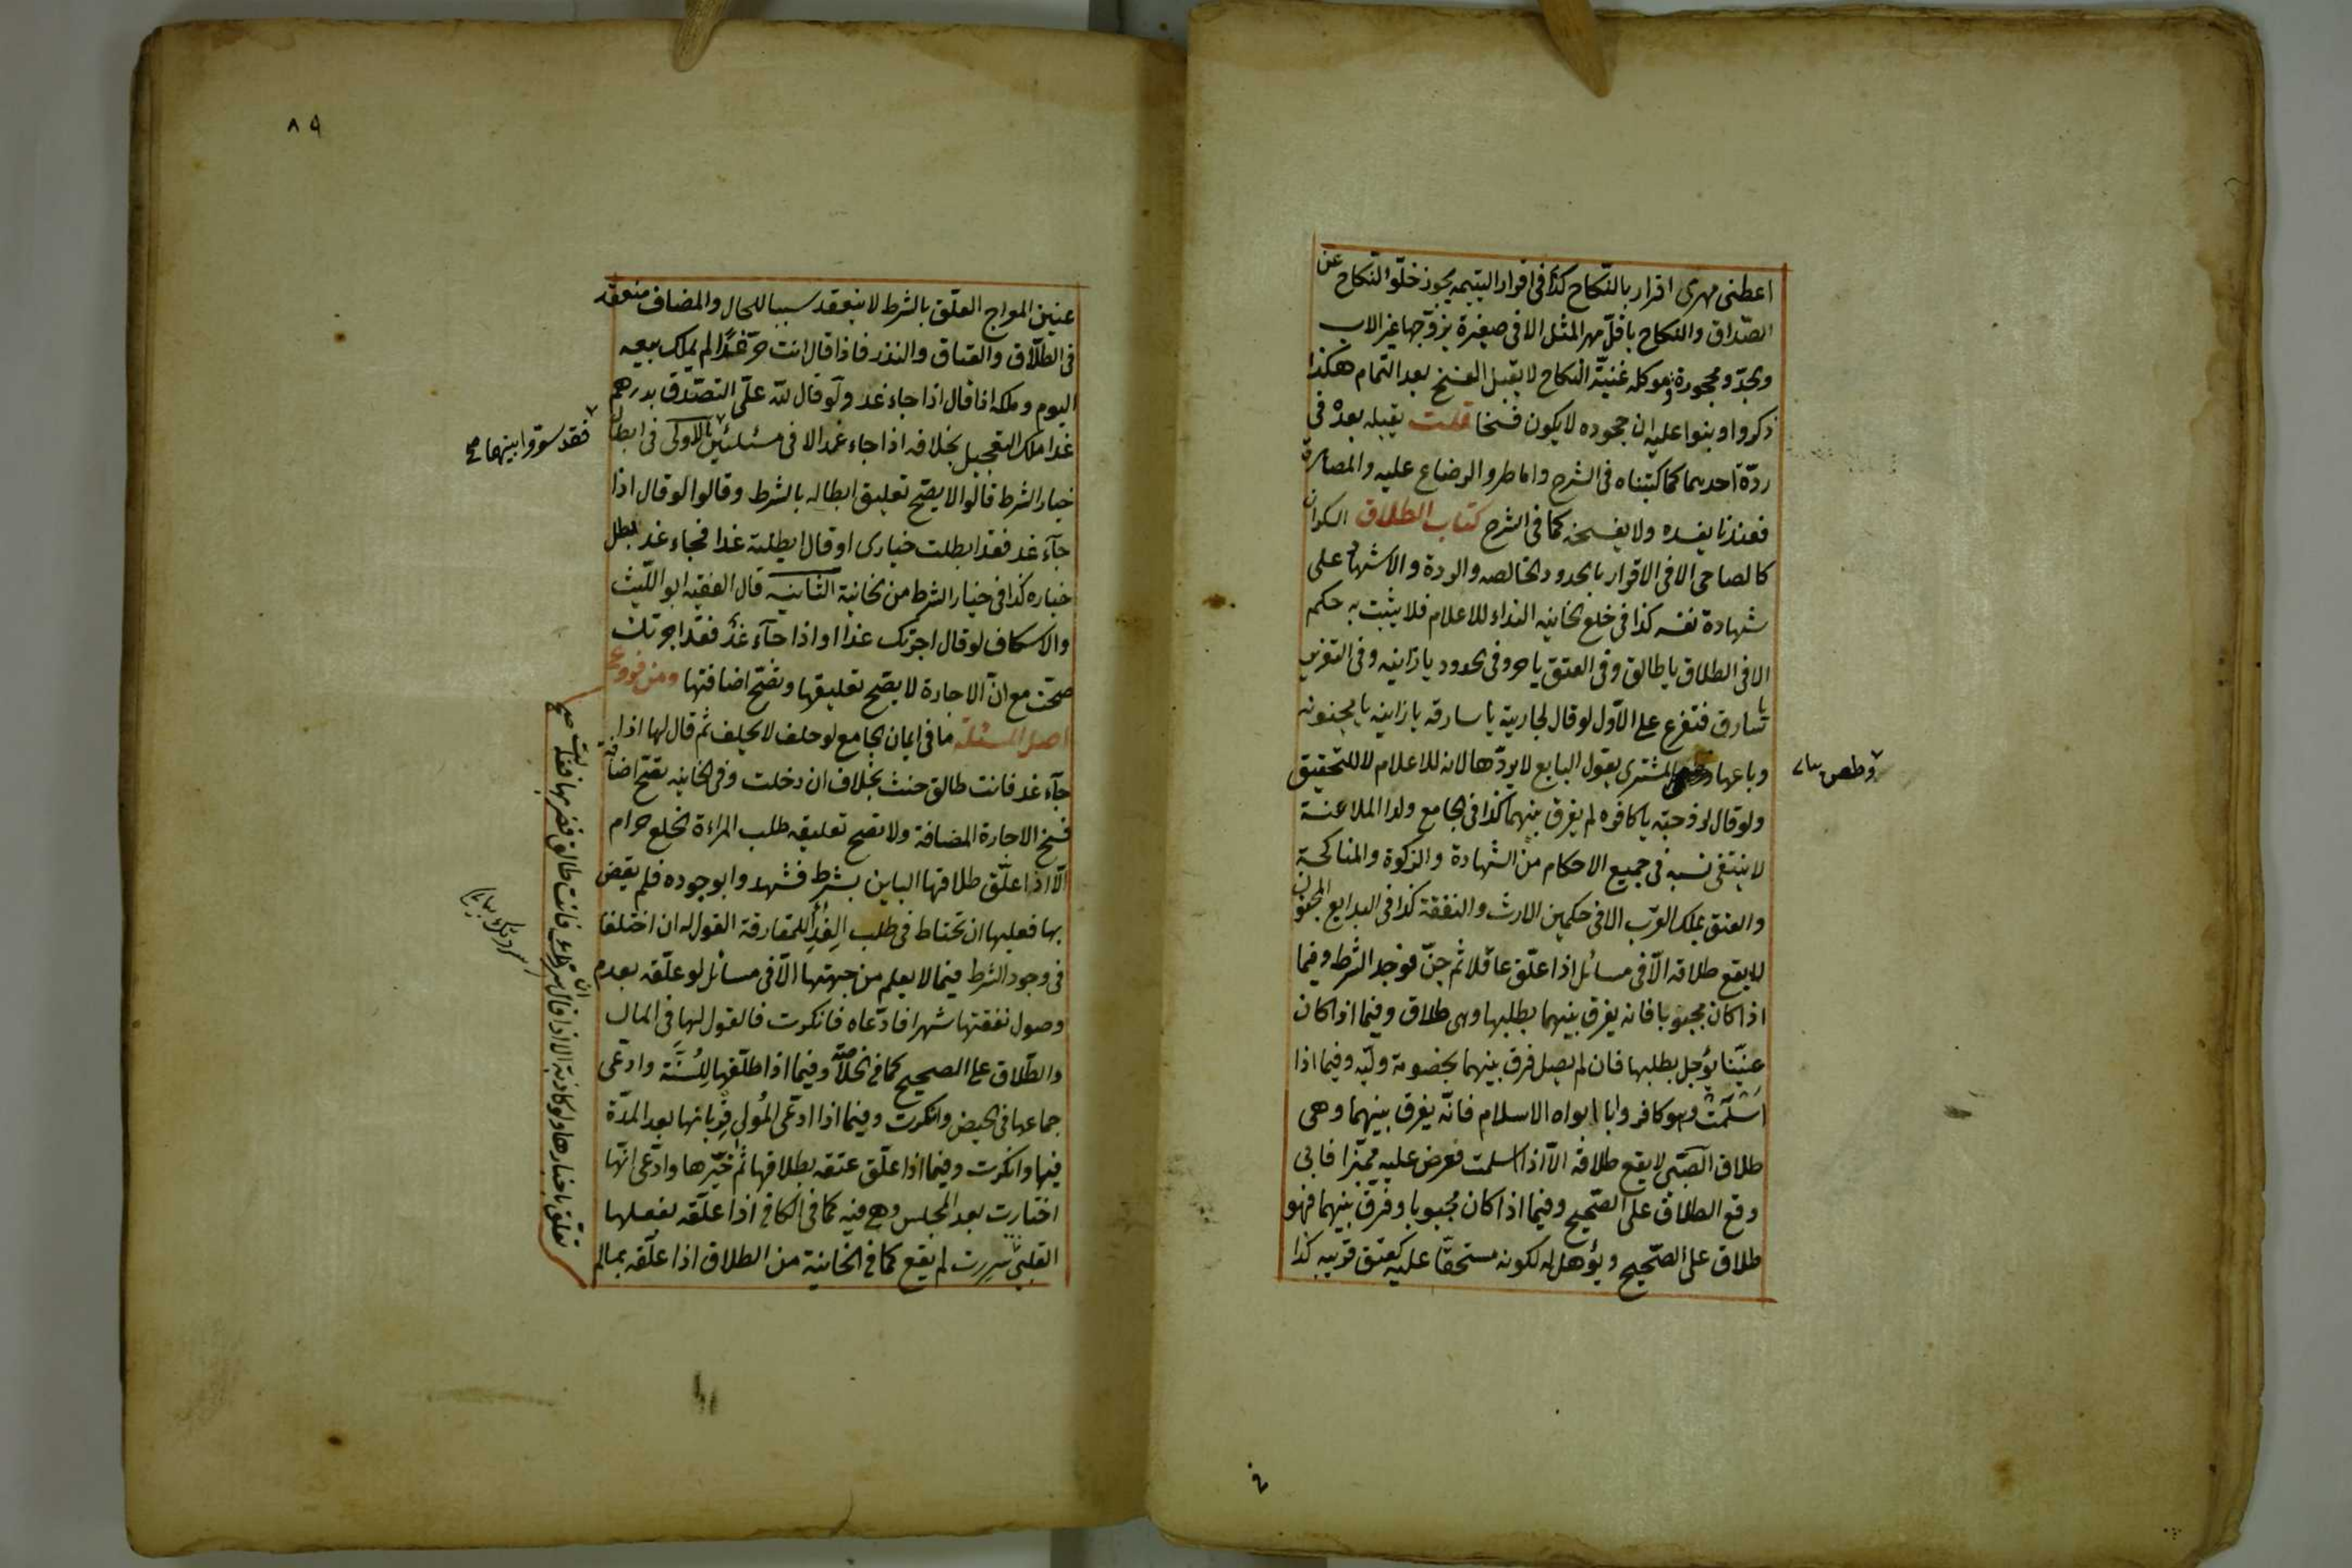 اعطنى مهرى اقرار بالنّكاح كذا فى اقرار اليتيمه يجوز خلّو النّكاح عن
الصّداق والنكاح باقلّ مهر المثل الا فى صغيرة يزوّجها غير الاب
والجدّ و محجورة وموكله عُنيّة النكاح لا يقبل الفسخ بعد التمام هكذا
ذكروا وبنوا عليه ان جحوده لا يكون فسخا قلت يقبله بعدْ فى
ردّة احدهما كما كتبناه فى الشرح واما طرو الرضاع عليه والمصاهرة
فعندنا يفسده ولا يفسخه كما فى الشرح كتاب الطلاق السكران
كالصاحى الا فى الاقرار بالحدود الخالصه والردة والاشهاد على
شهادة نفسه كذا فى خلع الخانيه النداء للاعلام فلا يثبت به حكم
الا فى الطلاق يا طالق وفى العتق يا حر وفى الحدود يا زانيه وفى التعزير
يا سارق فتفرع على الاوّل لو قال لجاريته يا سارقه يا زانيه يا مجنونه
وباعها المشترى بقول البايع لا يردّها لانه للاعلام لا للتحقيق
ولو قال لزوجته يا كافره لم يفرق بينهما كذا فى الجامع ولد الملاعنة
لا ينتفى نسبه فى جميع الاحكام من الشهادة والزكوة والمناكحة
والعتق بملك القرب الا فى حكمين الارث والنفقة كذا فى البدايع المجنون
لا يقع طلاقه الاّ فى مسائل اذا علّق عاقلا ثم جنّ فوجد الشرط وفيما
اذا كان مجبوبا فانه يفرق بينهما بطلبها وهى طلاق وفيما اذا كان
عنّينا يؤجل بطلبها فان لم يصل فرق بينهما بخصومة وليّه وفيما اذا
اسْلمَتْ وهو كافر وابا ابواه الاسلام فانّه يفرق بينهما وهى
طلاق الصّبىّ لا يقع طلاقه الاّ اذا اسلمت فعرض عليه مميّزا فابى
وقع الطلاق على الصّحيح وفيما اذا كان مجبوبا وفرّق بينهما فهو
طلاق على الصّحيح ويؤهل له لكونه مستحقّا عليه كعتق قريبه كذا
٨٩
عنين المواج المعلّق بالشرط لا ينعقد سببا للحال والمضاف منعقد
فى الطلّاق والعتاق والنذر فاذا قال انت حرّ غدًا لم يملك بيعه
اليوم وملكه اذا قال اذا جاء غد ولو قال للّه علىّ التصدّق بدرهم
غدا ملك التعجيل بخلافه اذا جاء غد الا فى مسئلتين الاولى فى ابطال
خيار الشرط قالوا لا يصّح تعليق ابطاله بالشرط وقالوا لو قال اذا
جآء غد فقد ابطلت خيارى او قال ابطلته غدا فجاء غد بطل
خياره كذا فى خيار الشرط من الخانية الثانيه قال الفقيه ابو اللّيث
والاسكاف لو قال اجرتك غدا او اذا جآء غدٌ فقد اجرتك
صحّت مع انّ الاجارة لا يصّح تعليقها وتصّح اضافتها ومن فروع
اصل المسئلة ما فى ايمان الجامع لو حلف لا يحلف ثم قال لها اذا
جآء غد فانت طالق حنث بخلاف ان دخلت وفى الخانيه تصّح اضافة
فسخ الاجارة المضافة ولا تصح تعليقه طلب المراءة الخلع حرام
الاّ اذا علّق طلاقها الباين بشرط فشهدوا بوجوده فلم يقض
بها فعليها ان تحتاط فى طلب الفِدَأ للمفارقة القول له ان اختلفا
فى وجود الشرط فيما لا يعلم من جهتها الاّ فى مسائل لو علّقه بعدم
وصول نفقتها شهرا فادّعاه فانكرت فالقول لها فى المال
والطّلاق على الصحيح كما فى الخلاصّة وفيما اذا طلّقها للسُّنّة وادّعى
جماعها فى الحيض وانكرت وفيما اذا ادّعى المُولى قربانها بعد المدّة
فيها وانكرت وفيما اذا علّق عتقه بطلاقها ثم خيّرها وادّعى انّها
اختارت بعد المجلس وهى فيه كما فى الكافى اذا علّقه بفعلها
القلبىّ تعلّق باخبارها ولو كاذبة الا اذا قال ان سررتك فانت طالق فضربها فقالت
سررت لم يقع كما فى الخانية من الطلاق اذا علّقه بما لم
فقد سوّوا بينهما صح